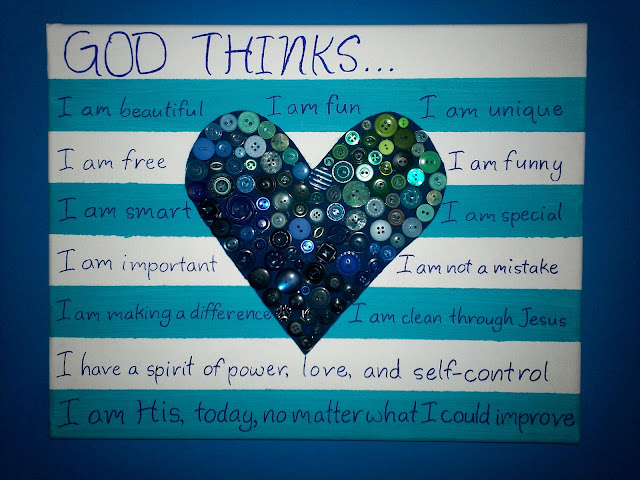 GOD THINKS...
I am beautiful I am fun I am unique
I am free I am funny
I am smart I am special
I am important I am not a mistake
I am making a difference I am clean through Jesus
I have a spirit of power, love, and self-control
I am His, today, no matter what I could improve